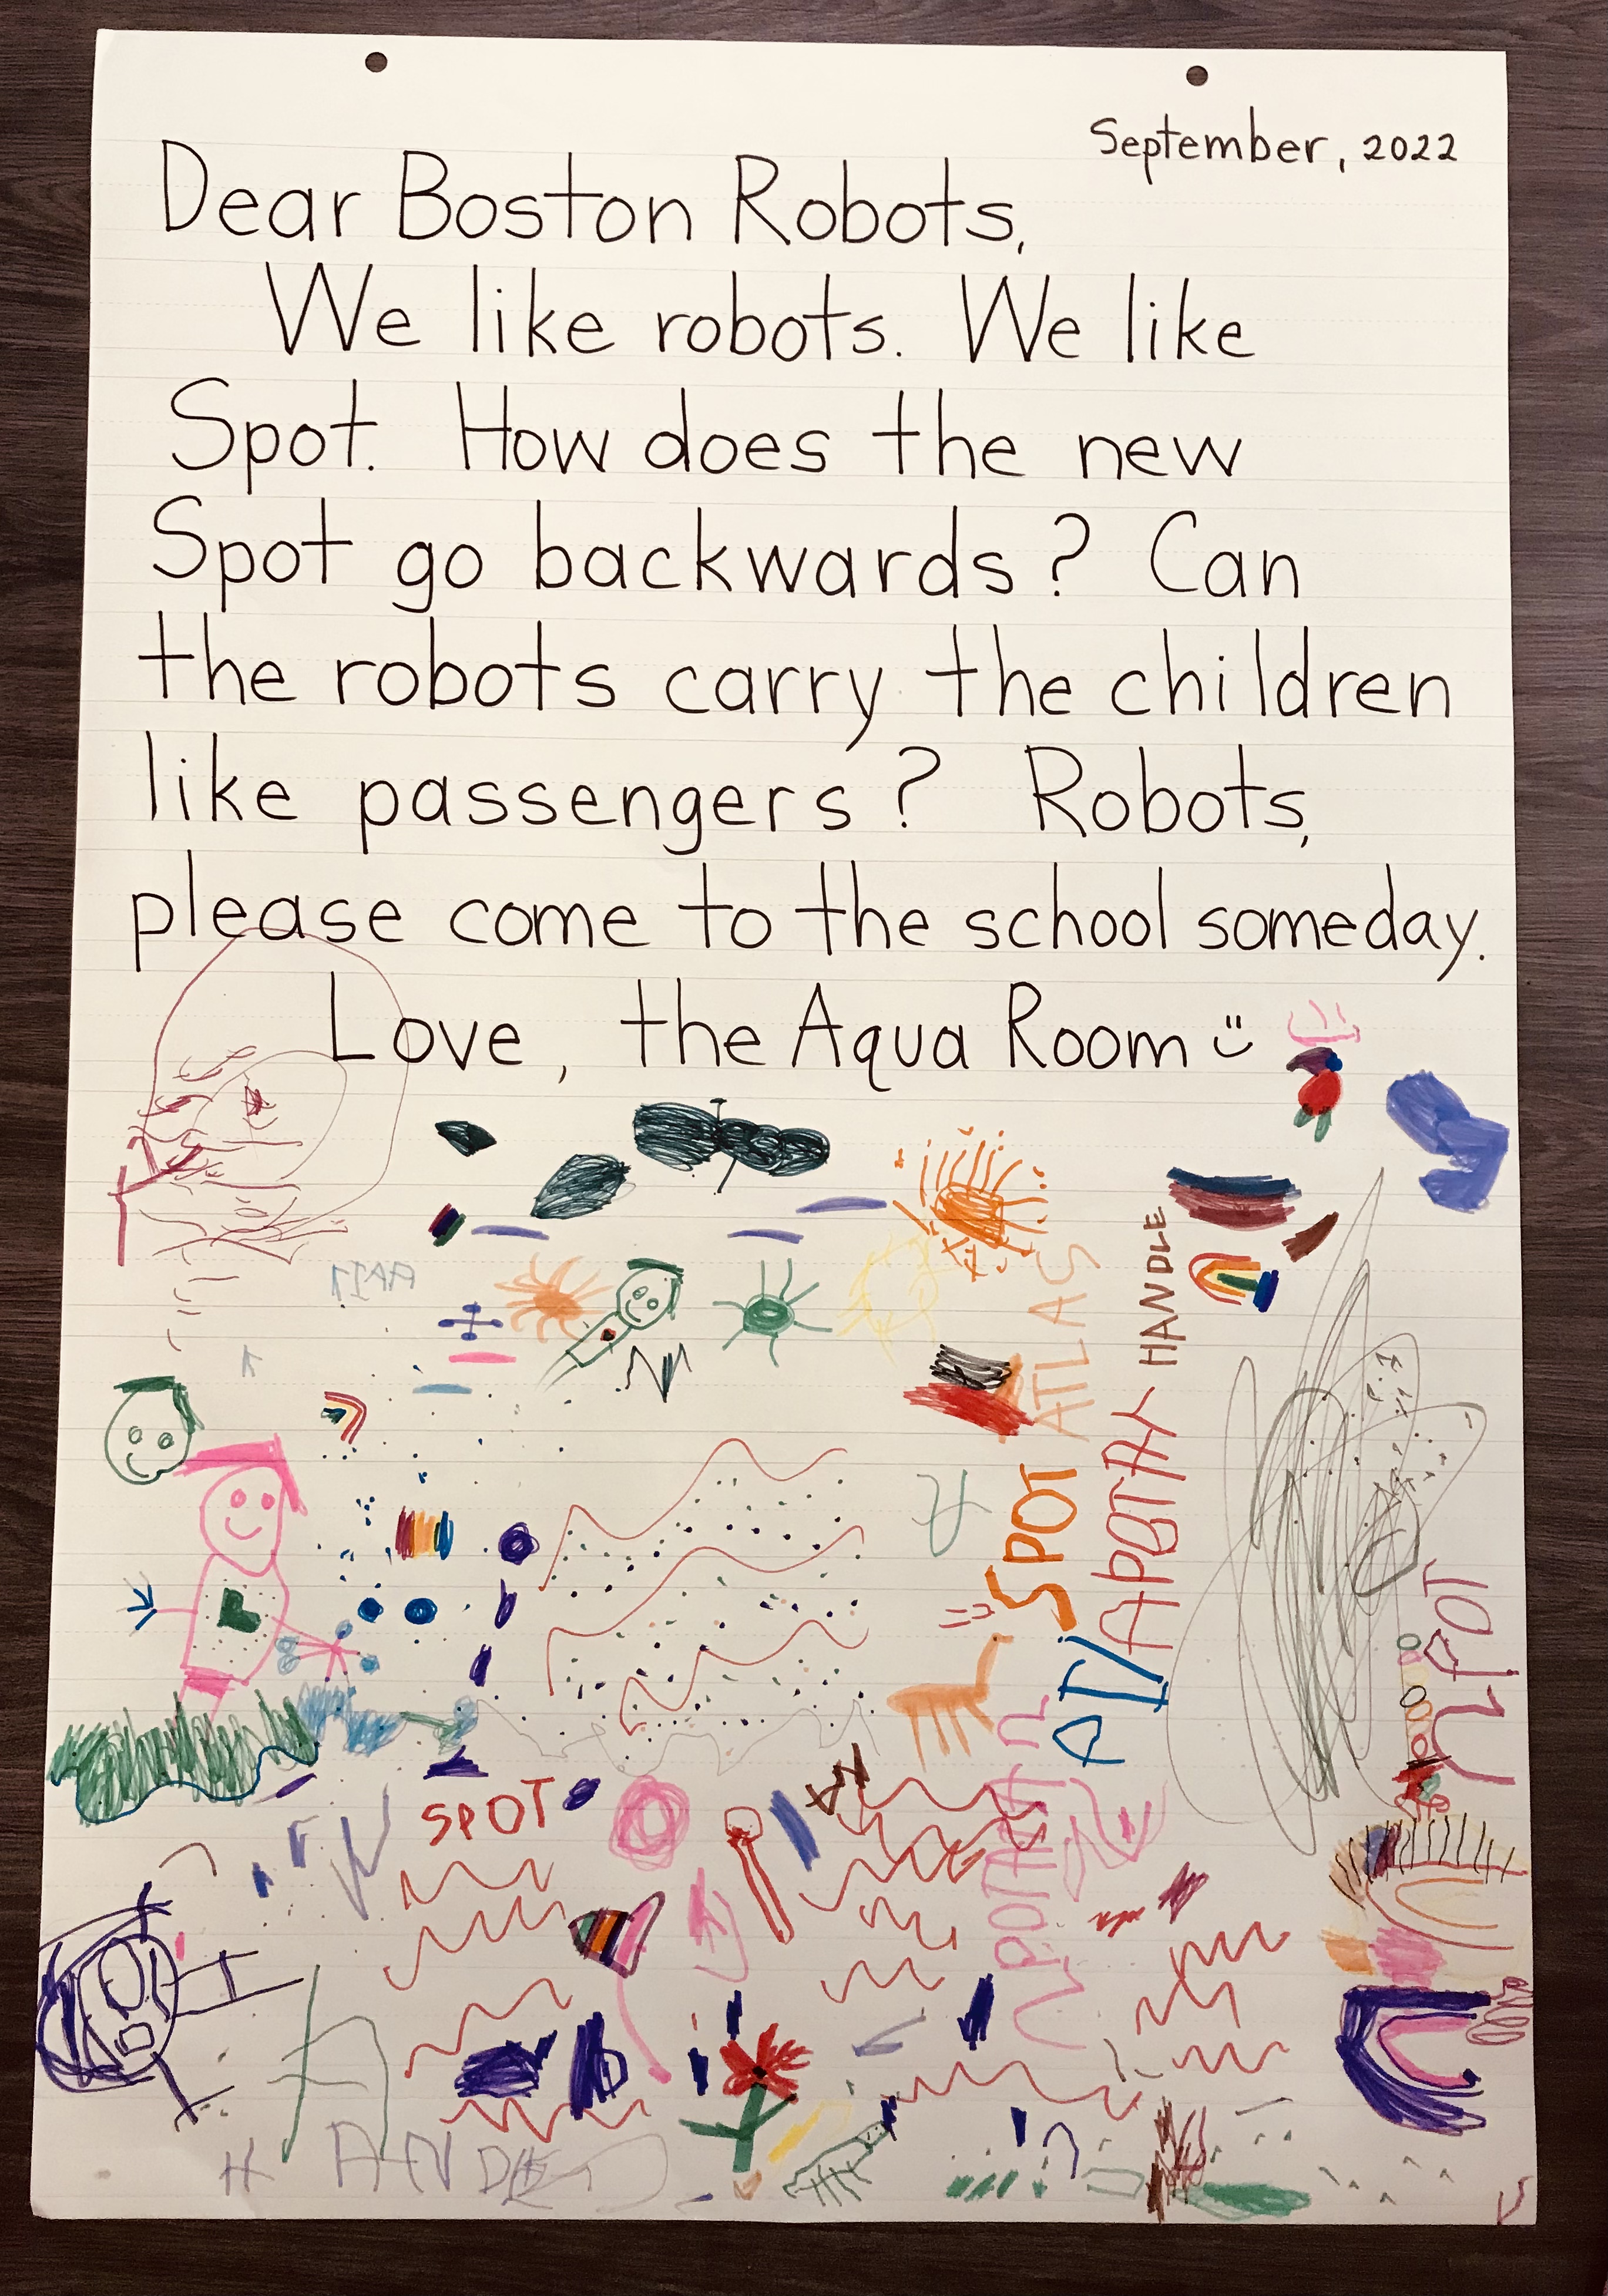 September, 2022
Dear Boston Robots,
We like robots. We like
Spot. How does the new
Spot go backwards? Can
the robots carry the children
like passengers? Robots,
please come to the school someday.
Love, the Aqua Room
HANDLE
ATLAS
SPOT
SPOT
HANDLE